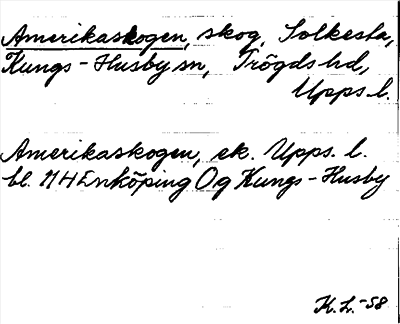 Amerikaskogen, skog, Solkesta,
Kungs-Husby sn, Trögds hd,
Upps. l.
Amerikaskogen, ek. Upps. l.
bl. 11 H Enköping Og Kungs-Husby
K. L. -58